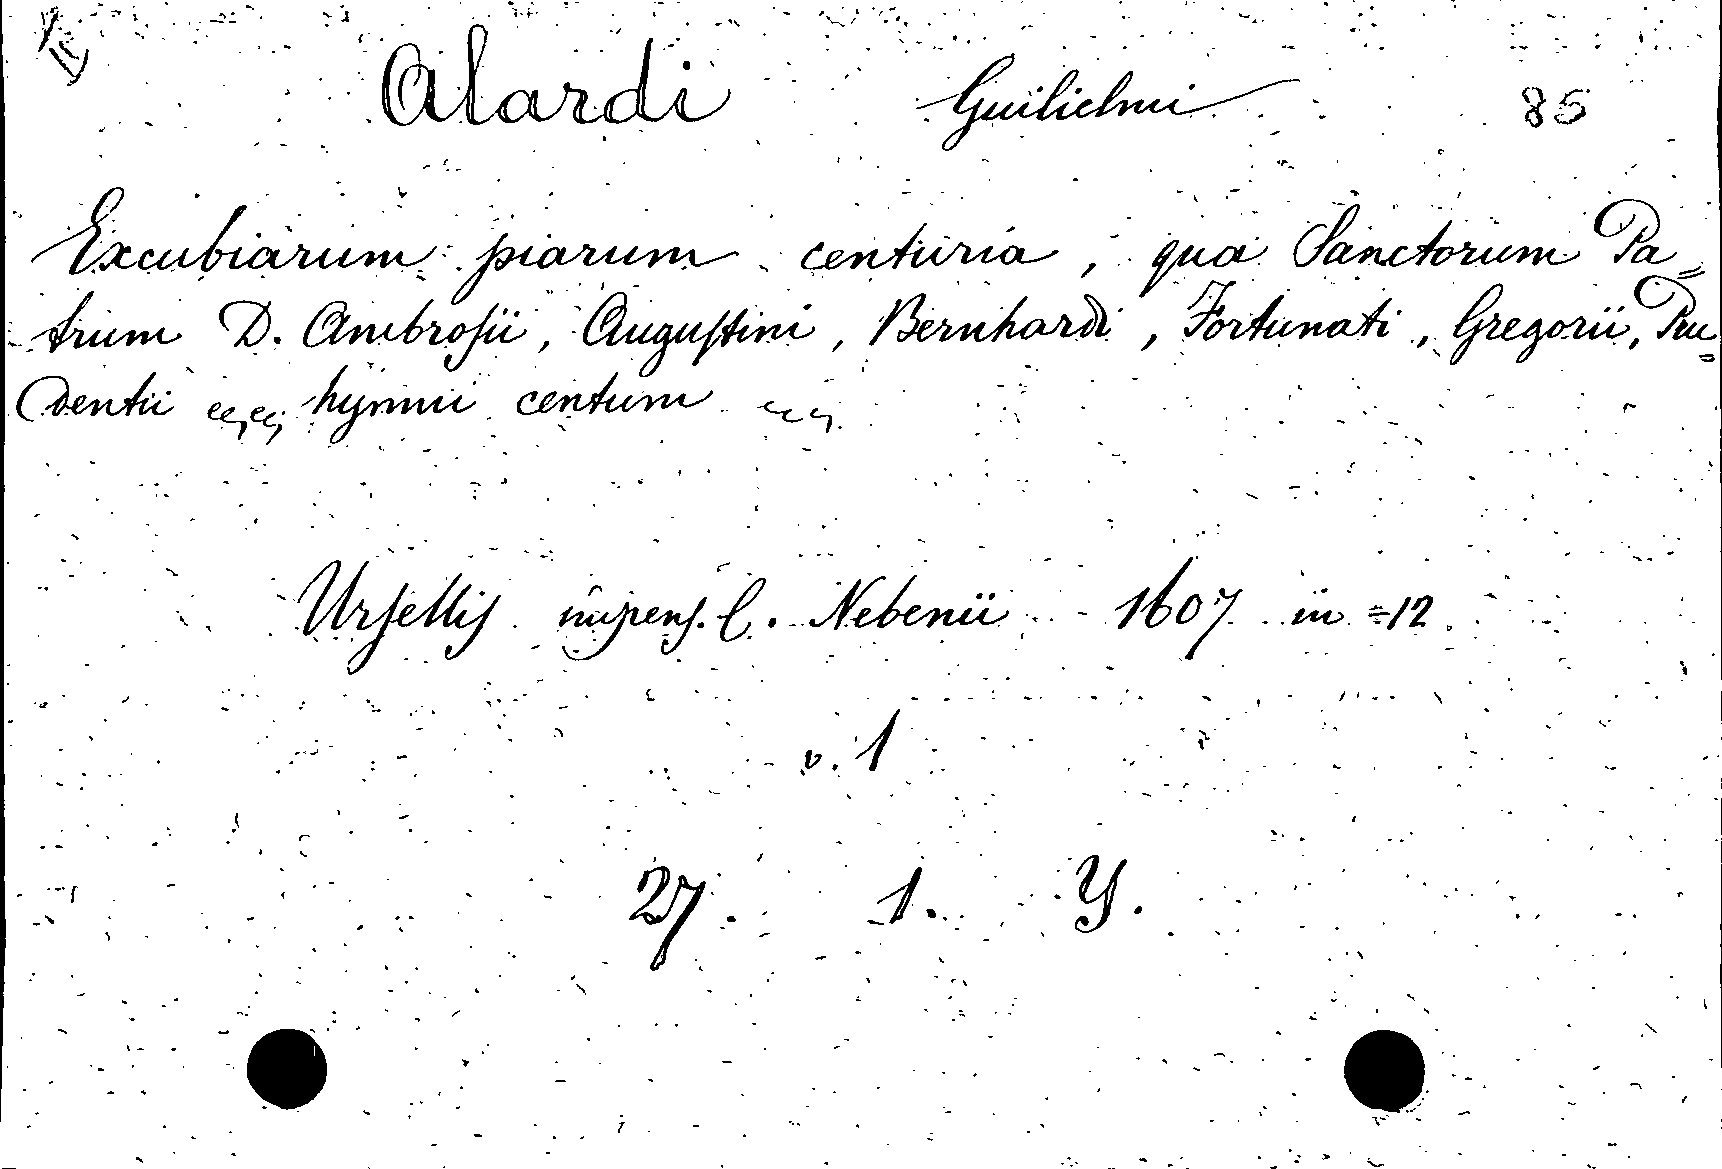 Alardi Guilielmi 85
Excubiarum piarum centuria, qua Sanctorum Pa=
trum D. Ambrosii, Augustini, Bernhardi, Fortunati, Gregorii, Pru=
dentii hymni centum
Ursellis impens. C. Nebenii 1607 in =12
v. 1
27. 1. Y.